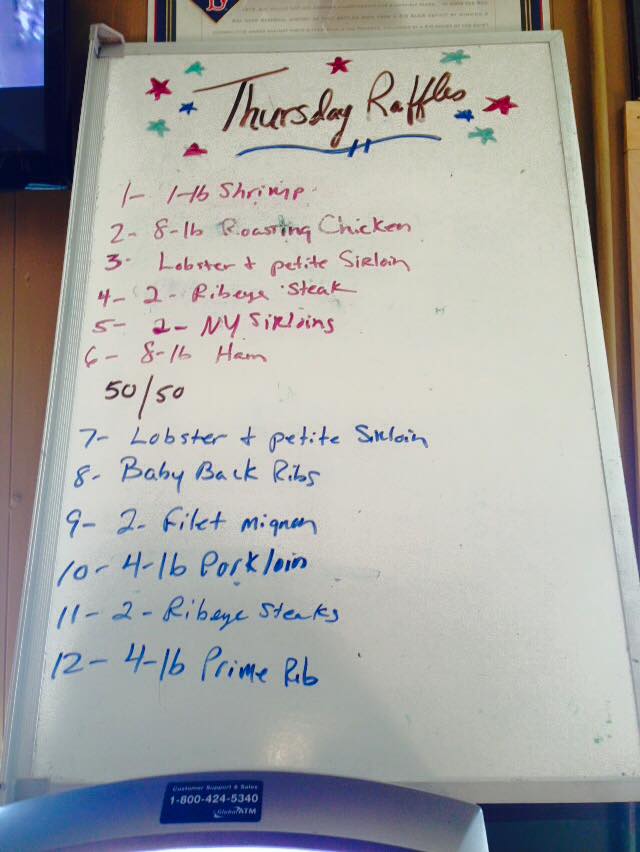 Thursday Raffles
1- 1-lb Shrimp
2- 8-lb Roasting Chicken
3- Lobster & petite Sirloin
4- 2- Ribeye Steak
5- 2- NY Sirloins
6- 8-lb Ham
50/50
7- Lobster & petite Sirloin
8- Baby Back Ribs
9- 2- Filet mignon
10- 4-lb Pork loin
11- 2- Ribeye Steaks
12- 4-lb Prime Rib
Customer Support & Sales
1-800-424-5340
GlobalATM